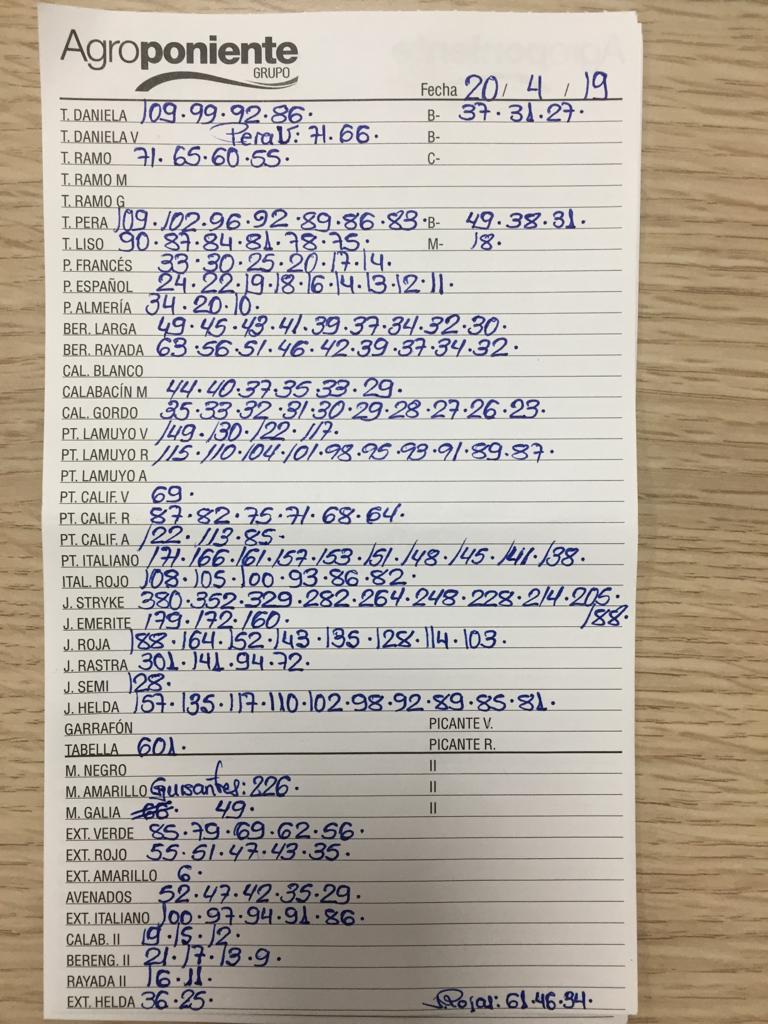 Agroponiente
GRUPO
Fecha 20/ 4 / 19
T. DANIELA 109·99·92·86· B- 37·31·27·
T. DANIELA V Pera V: 71·66· B-
T. RAMO 71·65·60·55· C-
T. RAMO M
T. RAMO G
T. PERA 109·102·96·92·89·86·83· B- 49·38·31·
T. LISO 90·87·84·81·78·75· M- 18·
P. FRANCÉS 33·30·25·20·17·14·
P. ESPAÑOL 24·22·19·18·16·14·13·12·11·
P. ALMERÍA 34·20·10·
BER. LARGA 49·45·43·41·39·37·34·32·30·
BER. RAYADA 63·56·51·46·42·39·37·34·32·
CAL. BLANCO
CALABACÍN M 44·40·37·35·33·29·
CAL. GORDO 35·33·32·31·30·29·28·27·26·23·
PT. LAMUYO V 149·130·122·117·
PT. LAMUYO R 115·110·104·101·98·95·93·91·89·87·
PT. LAMUYO A
PT. CALIF. V 69·
PT. CALIF. R 87·82·75·71·68·64·
PT. CALIF. A 122·113·85·
PT. ITALIANO 171·166·161·157·153·151·148·145·141·138·
ITAL. ROJO 108·105·100·93·86·82·
J. STRYKE 380·352·329·282·264·248·228·214·205·
J. EMERITE 179·172·160· 188·
J. ROJA 188·164·152·143·135·128·114·103·
J. RASTRA 301·141·94·72·
J. SEMI 128·
J. HELDA 157·135·117·110·102·98·92·89·85·81·
GARRAFÓN PICANTE V.
TABELLA 601· PICANTE R.
M. NEGRO II
M. AMARILLO Guisantes: 226· II
M. GALIA 49· II
EXT. VERDE 85·79·69·62·56·
EXT. ROJO 55·51·47·43·35·
EXT. AMARILLO 6·
AVENADOS 52·47·42·35·29·
EXT. ITALIANO 100·97·94·91·86·
CALAB. II 19·15·12·
BERENG. II 21·17·13·9·
RAYADA II 16·11·
EXT. HELDA 36·25· J. Rojas: 61·46·34·